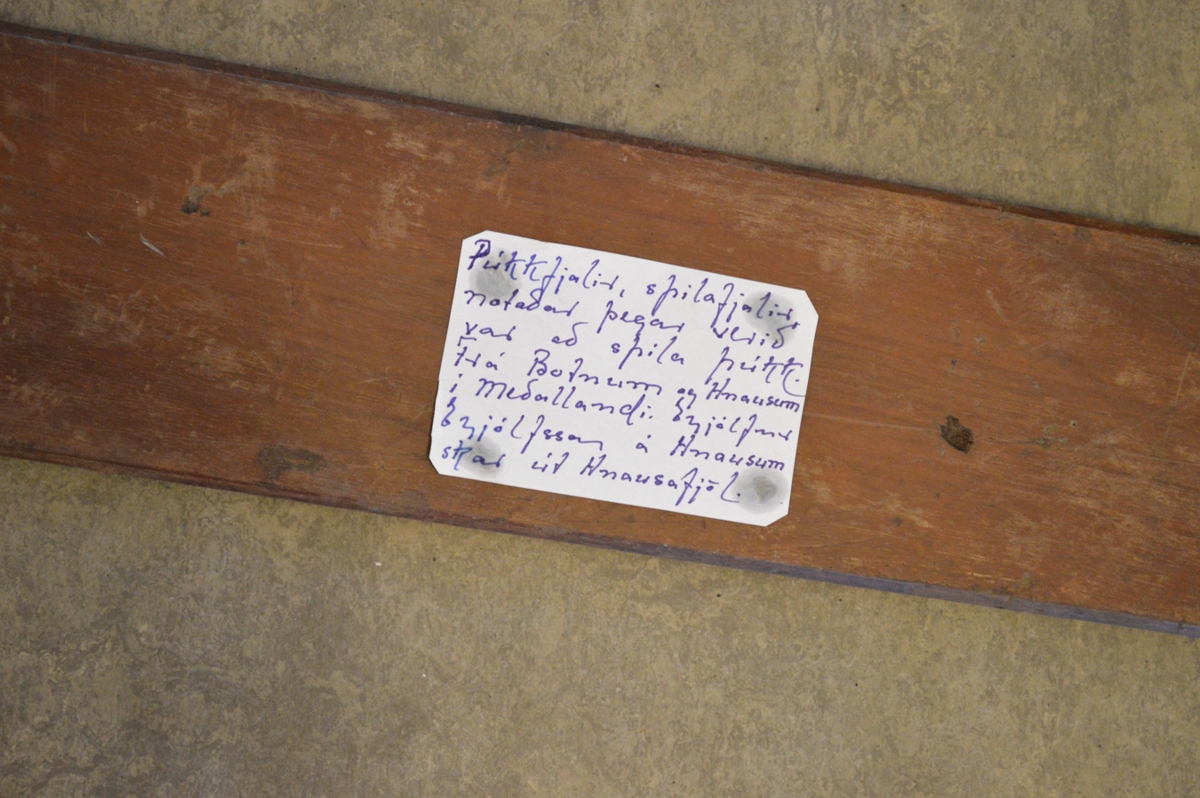 Púkkfjalir, spilafjalir
notaðar þegar verið
var að spila púkk.
Frá Botnum og Hnausum
í Meðallandi. Eyjólfur
Eyjólfsson á Hnausum
skar út Hnausafjöl.